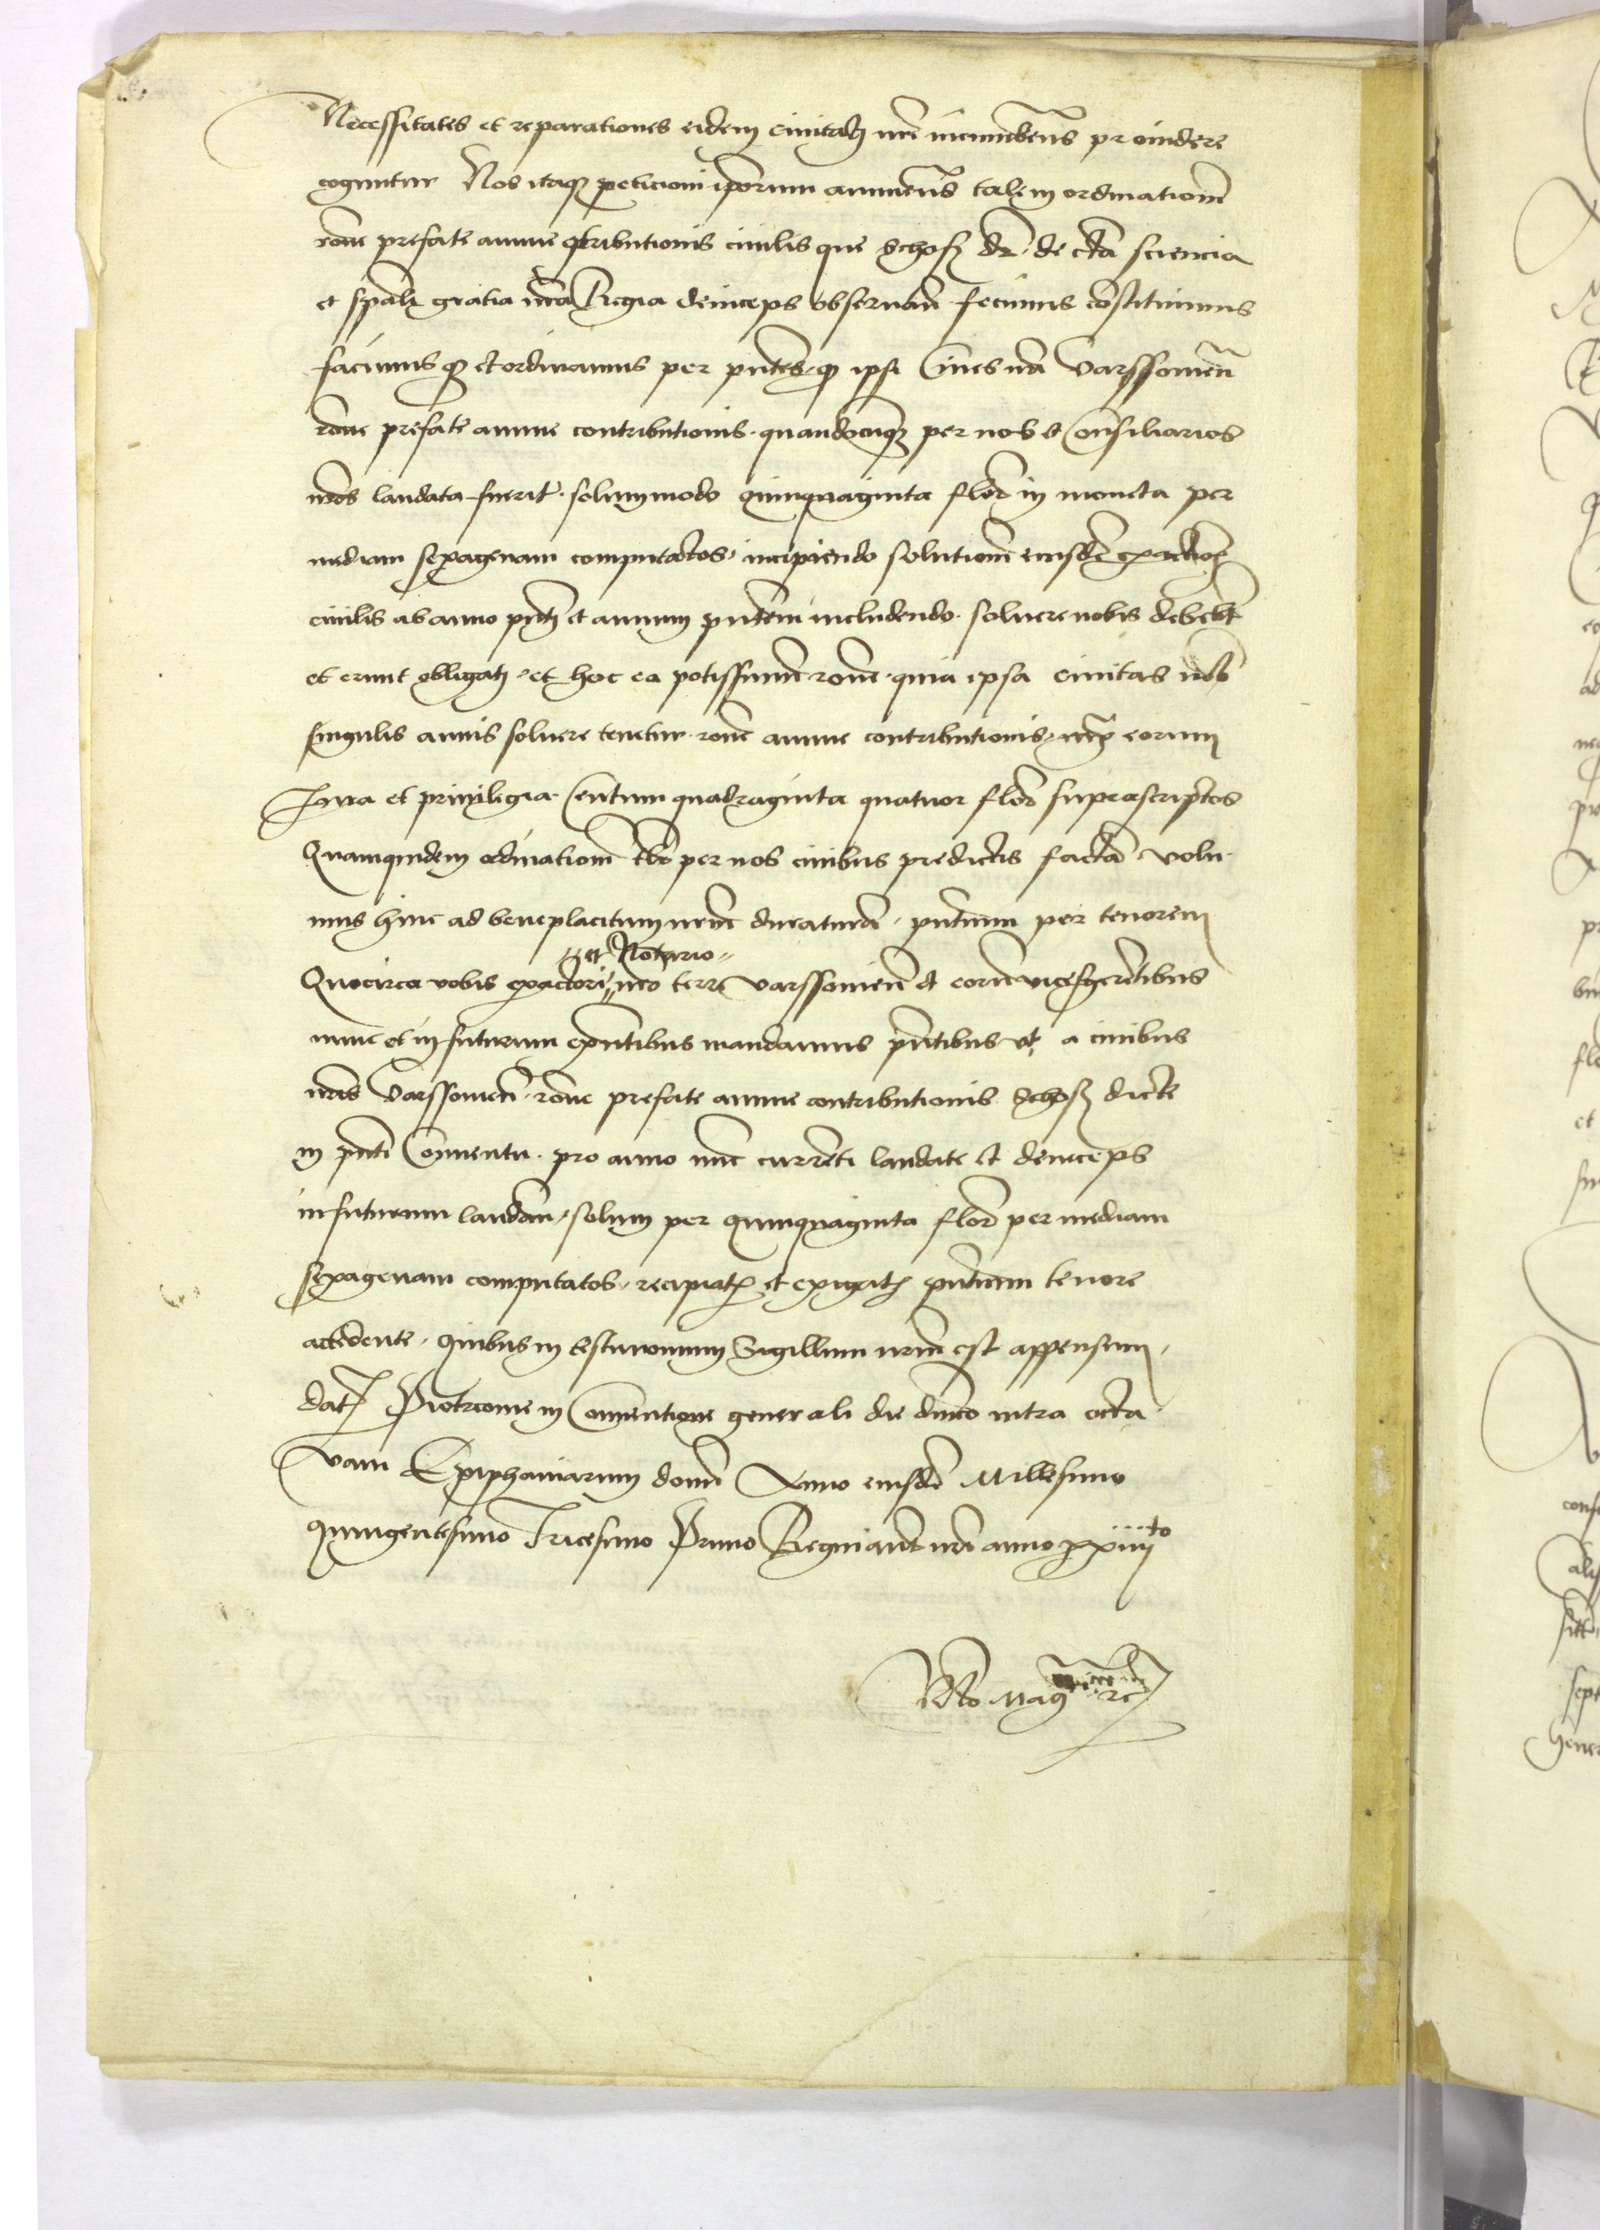 Necessitates et reparationes eidem civitati nre incumbens providere
coguntur Nos itaqz peticioni ipsorum annuens talem ordinationem
rone prefate annue contributionis civilis que Schosz dr. de certa sciencia
et spali gratia nra Regia deinceps observan fecimus constituimus
facimus qz et ordinamus per pntes qz ipsi Cives nri Varssovien
rone prefate annue contributionis quandocuqz per nos et Consiliarios
nros laudata fuerit solummodo quinquaginta flor in moneta per
mediam sexagenam computatos incipiendo solutionem eiusdem exactionis
civilis ab anno pnti et annum pntem includendo solvere nobis debebt
et erunt obligati et hoc ea potissimum rone quia ipsa civitas nobis
singulis annis solvere tenetur rone annue contributionis iuxta eorum
Jura et privilegia Centum quadraginta quatuor flor suprascriptos
Quamquidem ordinationem sic per nos civibus predictis factam volu
mus hinc ad beneplacitum nrm duraturam pntium per tenorem
et Notario
Quocirca vobis exactori nro terre Varssovien et eorum vicesgerentibus
nunc et in futurum exntibus mandamus pntibus ut a civibus
nris Varssovien rone prefate annue contributionis Schosz dicte
in pnti Conventu pro anno nunc currenti laudate et deinceps
in futurum laudan solum per quinquaginta flor per mediam
sexagenam computatos recipiatis et exigatis pntium tenore
accedente quibus in testimonium Sigillum nrm est appensum
datum Piotrcovie in Conventione generali die dnico intra octa
vam Epiphaniarum domini Anno eiusdem Millesimo
Quingentesimo Tricesimo Primo Regni aut nri anno xxiiiito